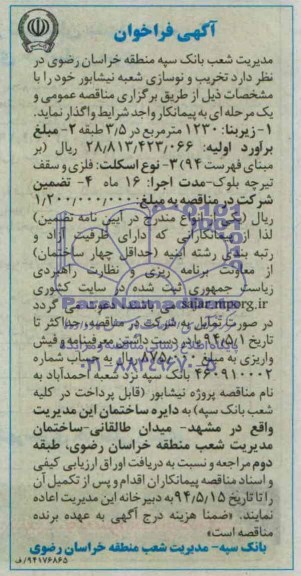 آگهی فراخوان
مدیریت شعب بانک سپه منطقه خراسان رضوی در
نظر دارد تخریب و نوسازی شعبه نیشابور خود را با
مشخصات ذیل از طریق برگزاری مناقصه عمومی و
یک مرحله ای به پیمانکار واجد شرایط واگذار نماید.
۱- زیربنا: ۱۲۳۰ مترمربع در ۳/۵ طبقه ۲- مبلغ
برآورد اولیه: ۲۸/۸۱۳/۴۲۳/۰۶۶ ریال (بر
مبنای فهرست ۹۴) ۳- نوع اسکلت: فلزی و سقف
تیرچه بلوک- مدت اجرا: ۱۶ ماه ۴- تضمین
شرکت در مناقصه به مبلغ: ۱/۲۰۰/۰۰۰/۰۰۰
ریال (یکی از انواع مندرج در آیین نامه تضمین)
لذا از پیمانکارانی که دارای ظرفیت آزاد و
رتبه بندی رشته ابنیه (حداقل چهار ساختمان)
از معاونت برنامه ریزی و نظارت راهبردی
ریاست جمهوری ثبت شده در سایت کشوری
sajar.mporg.ir می باشند دعوت می گردد
در صورت تمایل به شرکت در مناقصه، حداکثر تا
تاریخ ۹۴/۵/۱ با در دست داشتن معرفینامه و فیش
واریزی به مبلغ ریال به حساب شماره
۴۶۰۹۱۰۰۰۲ بانک سپه نزد شعبه احمدآباد به
نام مناقصه پروژه نیشابور (قابل پرداخت در کلیه
شعب بانک سپه) به دایره ساختمان این مدیریت
واقع در مشهد- میدان طالقانی- ساختمان
مدیریت شعب منطقه خراسان رضوی، طبقه
دوم مراجعه و نسبت به دریافت اوراق ارزیابی کیفی
و اسناد مناقصه پیمانکاران اقدام و پس از تکمیل آن
را تا تاریخ ۹۴/۵/۱۵ به دبیرخانه این مدیریت اعاده
نمایند. «ضمنا هزینه درج آگهی به عهده برنده
مناقصه است»
بانک سپه- مدیریت شعب منطقه خراسان رضوی
۹۴۱۷۶۸۶۵/ف
ParsNamadData
۰۲۱-۸۸۳۴۹۶۷۰-۵